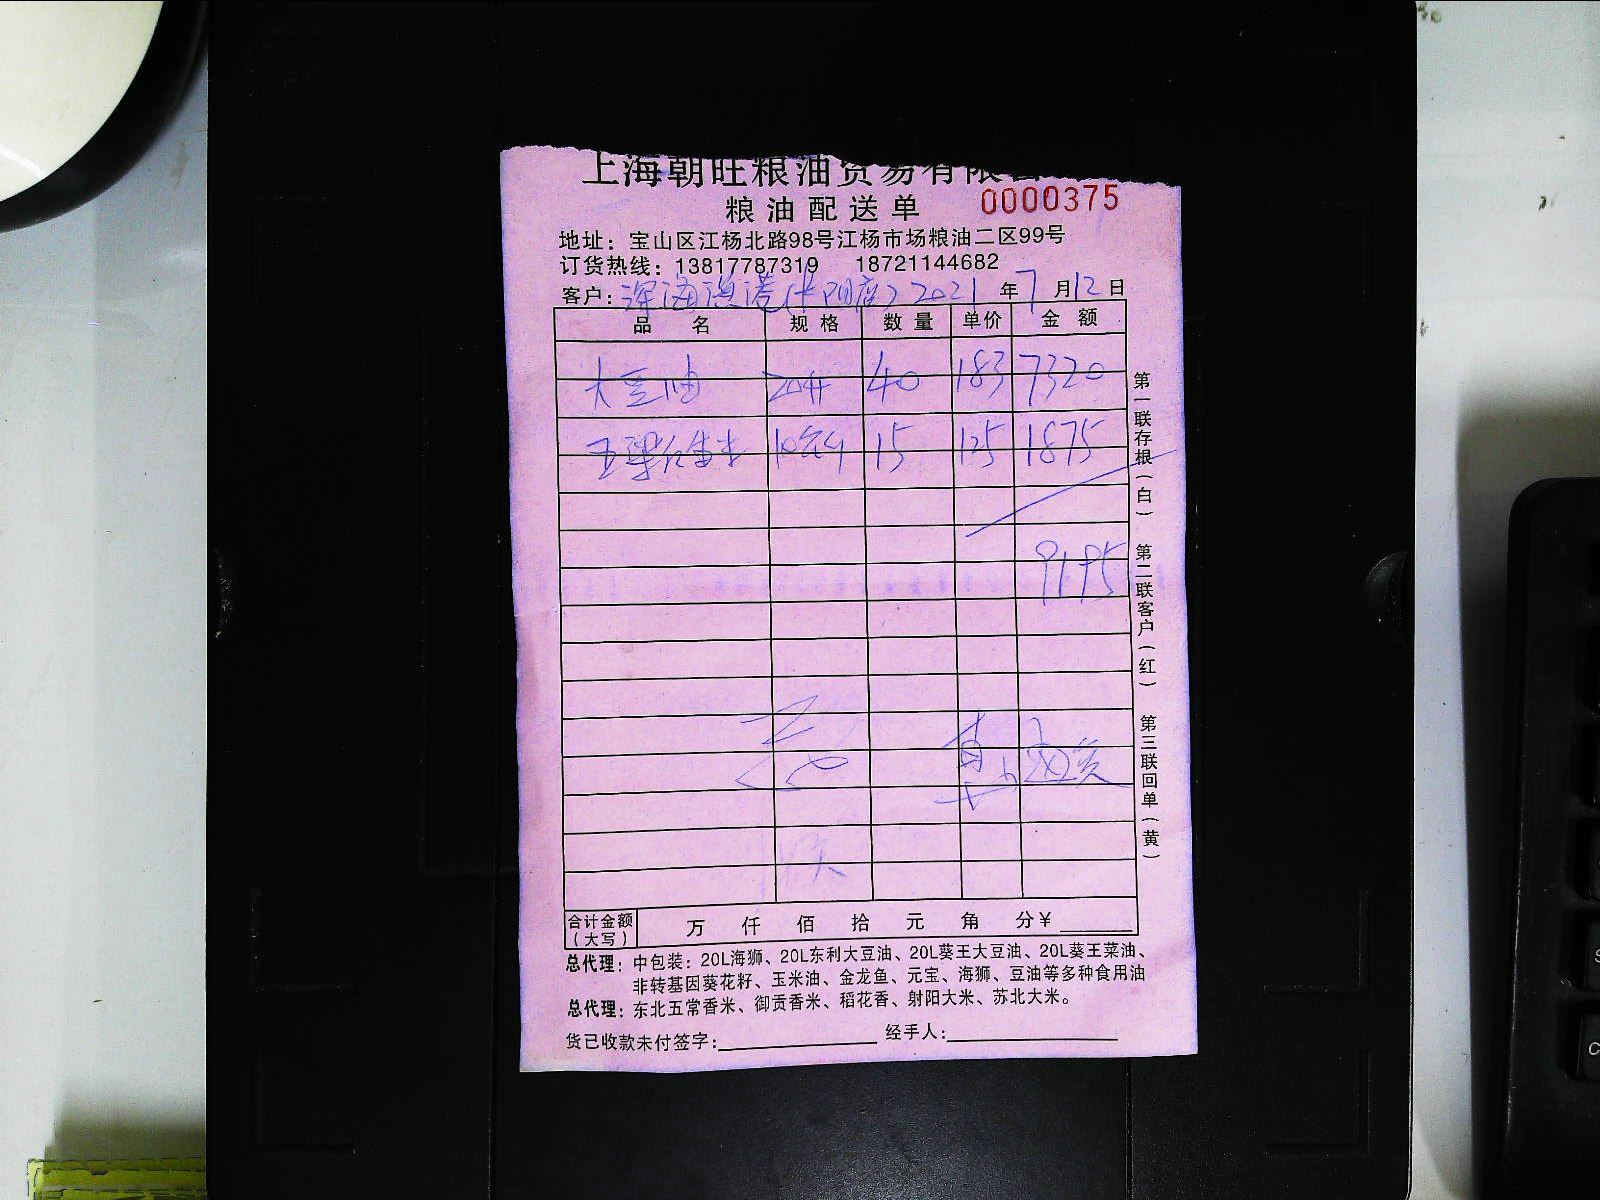 上海朝旺粮油贸易有限
0000375
粮油配送单
地址：宝山区江杨北路98号江杨市场粮油二区99号
订货热线：13817787319 18721144682
客户：深海渔港 2021年7月12日
品名 规格 数量 单价 金额
大豆油 20升 40 183 7320
10公斤 15 125 1875
9195
第一联存根（白） 第二联客户（红） 第三联回单（黄）
合计金额（大写） 万 仟 佰 拾 元 角 分￥
总代理：中包装：20L海狮、20L东利大豆油、20L葵王大豆油、20L葵王菜油、
非转基因葵花籽、玉米油、金龙鱼、元宝、海狮、豆油等多种食用油
总代理：东北五常香米、御贡香米、稻花香、射阳大米、苏北大米。
货已收款未付签字： 经手人：